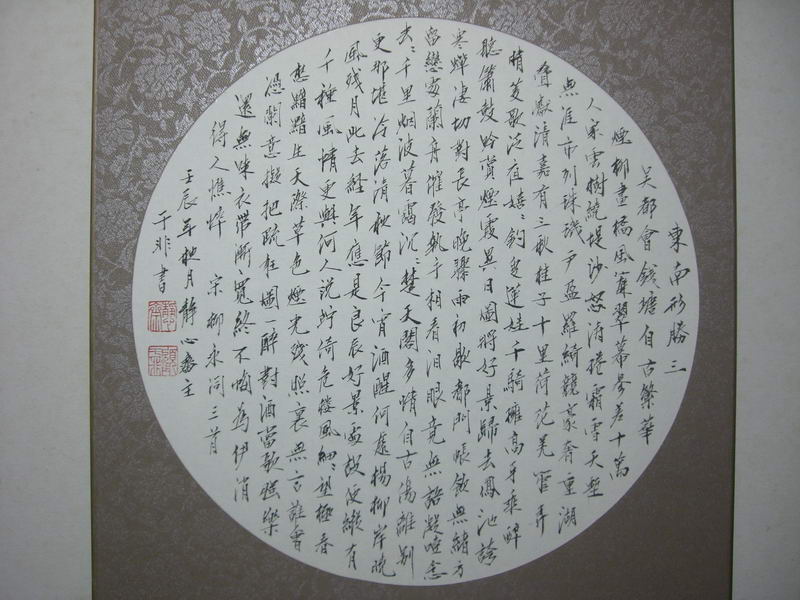 東南形勝三
吳都會錢塘自古繁華
煙柳畫橋風簾翠幕參差十萬
人家雲樹繞堤沙怒濤捲霜雪天塹
無涯市列珠璣戶盈羅綺競豪奢重湖
疊巘清嘉有三秋桂子十里荷花羌管弄
晴菱歌泛夜嬉〻釣叟蓮娃千騎擁高牙乘醉
聽簫鼓吟賞煙霞異日圖將好景歸去鳳池誇
寒蟬淒切對長亭晚驟雨初歇都門帳飲無緒方
留戀處蘭舟催發執手相看淚眼竟無語凝噎念
去〻千里烟波暮靄沉〻楚天闊多情自古傷離別
更那堪冷落清秋節今宵酒醒何處楊柳岸曉
風殘月此去經年應是良辰好景虛設便縱有
千種風情更與何人說竚倚危樓風細〻望極春
愁黯黯生天際草色煙光殘照裏無言誰會
憑闌意擬把疏狂圖一醉對酒當歌強樂
還無味衣帶漸寬終不悔為伊消
得人憔悴 宋柳永詞三首
壬辰年秋月靜心齋主
于非書